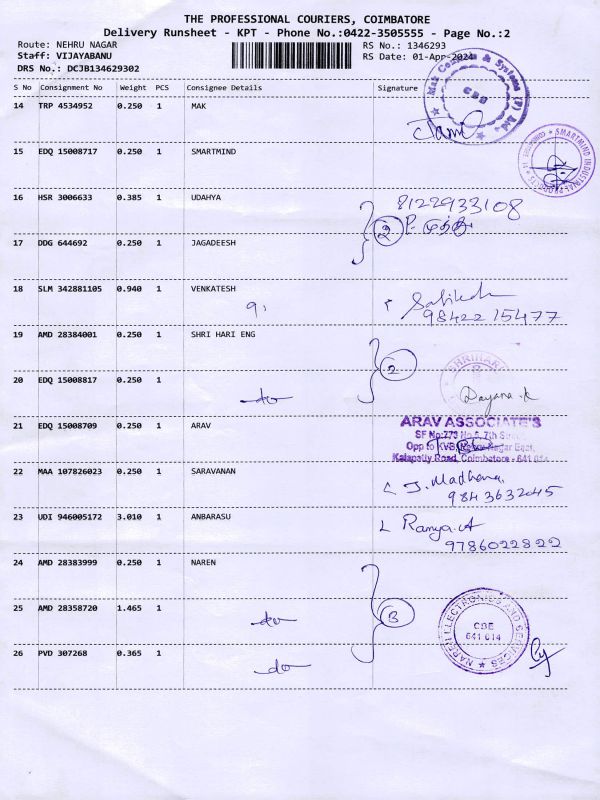 THE PROFESSIONAL COURIERS, COIMBATORE
Delivery Runsheet - KPT - Phone No.:0422-3505555 - Page No.:2
Route: NEHRU NAGAR RS No.: 1346293
Staff: VIJAYABANU RS Date: 01-Apr-2024
DRS No.: DCJB134629302
S No Consignment No Weight PCS Consignee Details Signature
14 TRP 4534952 0.250 1 MAK
15 EDQ 15008717 0.250 1 SMARTMIND
16 HSR 3006633 0.385 1 UDAHYA 8122933108
2
17 DDG 644692 0.250 1 JAGADEESH
18 SLM 342881105 0.940 1 VENKATESH
98422 15477
19 AMD 28384001 0.250 1 SHRI HARI ENG
2
SHRIHARI
20 EDQ 15008817 0.250 1 -do- Dayana.k
21 EDQ 15008709 0.250 1 ARAV ARAV ASSOCIATE'S
SF No:773
Opp to KVB, Nehru Nagar East,
Kalapatty Road, Coimbatore - 641 014
22 MAA 107826023 0.250 1 SARAVANAN J. Madhana
9843632045
23 UDI 946005172 3.010 1 ANBARASU Ranya.A
9786022822
24 AMD 28383999 0.250 1 NAREN
25 AMD 28358720 1.465 1 -do- 3
NAREN ELECTRONICS AND SERVICES
CBE
641 014
26 PVD 307268 0.365 1 -do-